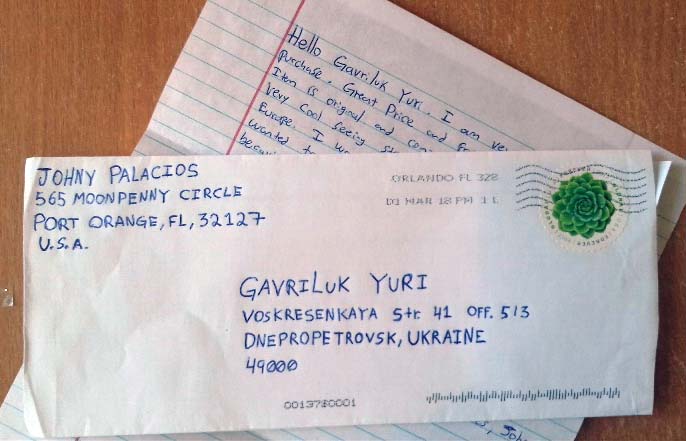 Hello Gavriluk Yuri. I am ve
purchase. Great Price and
Item is original and
very cool seeing
Europe. I
wanted
JOHNY PALACIOS
565 MOONPENNY CIRCLE
PORT ORANGE, FL, 32127
U.S.A.
ORLANDO FL 328
01 MAR 18 PM 1 L
GAVRILUK YURI
VOSKRESENKAYA Str. 41 OFF. 513
DNEPROPETROVSK, UKRAINE
49000
0013750001